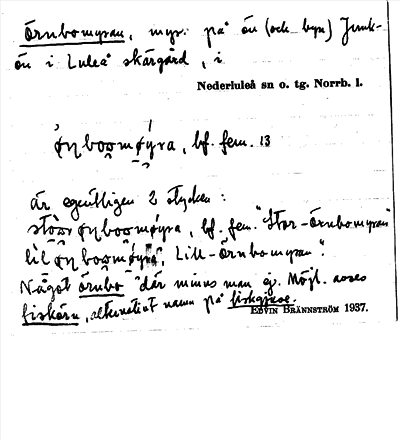 Örnbomyran, myr. på ön (och byn) Junk-
ön i Luleå skärgård, i
Nederluleå sn o. tg. Norrb. l.
ø̀ɳbo̯o̯mǿyra, bf. fem. 13
är egentligen 2 stycken:
stòo̯r ø̀ɳbo̯o̯mǿyra, bf. fem. "Stor-Örnbomyran"
lìl ø̀ɳbo̯o̯mǿyra, Lill-Örnbomyran".
Något örnbo där minns man ej. Möjl. avses
fiskörn, alternativt namn på fiskgjuse.
EDVIN BRÄNNSTRÖM 1937.